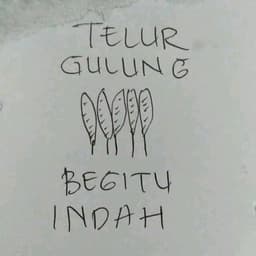 TELUR
GULUNG
BEGITU
INDAH